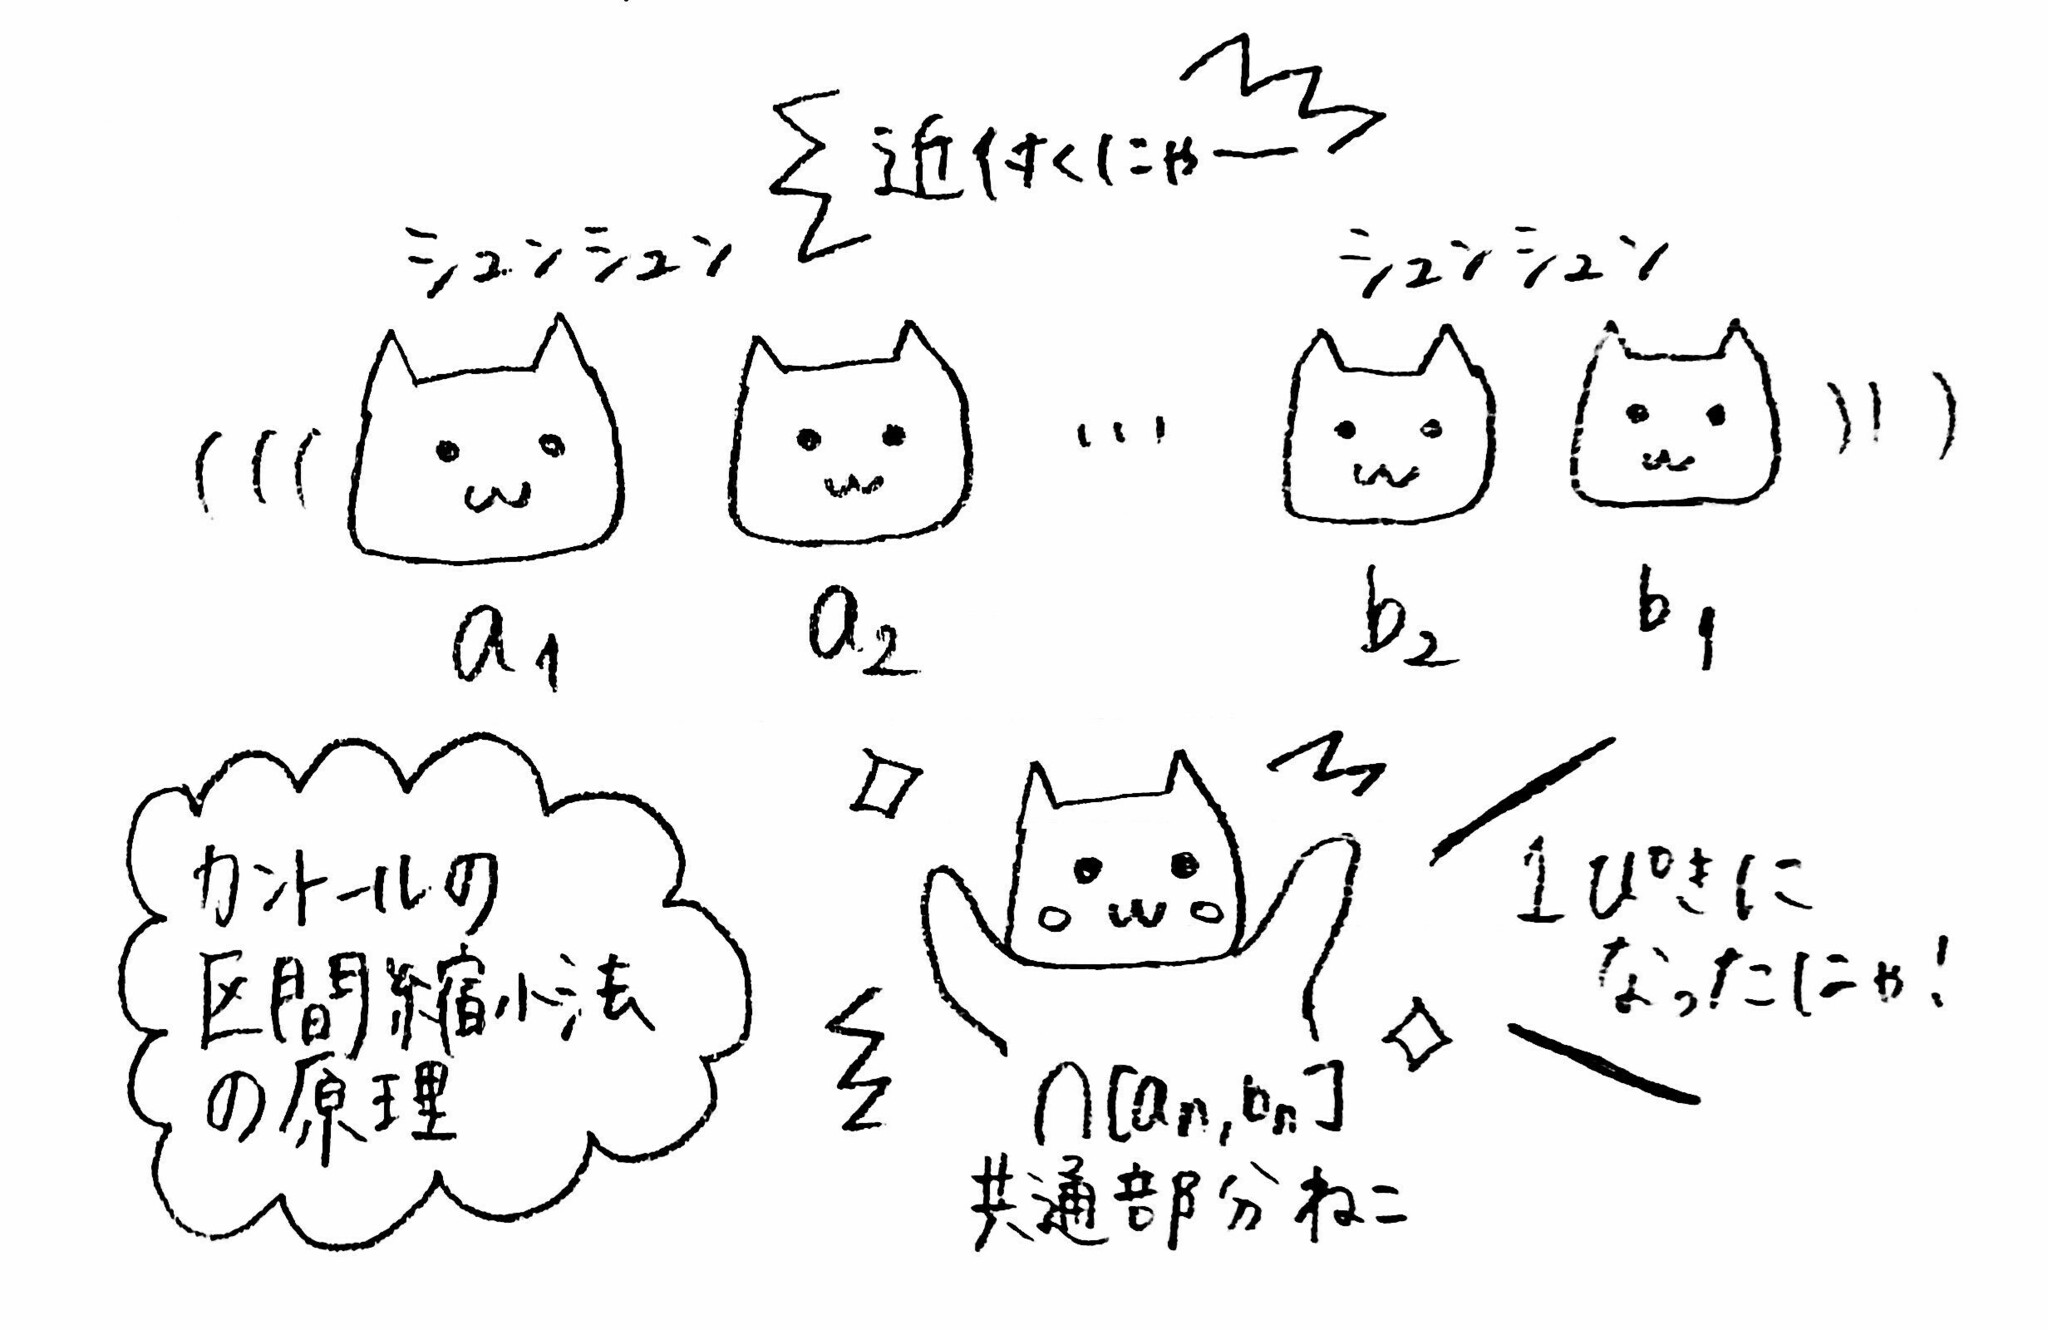 近付くにゃー
シュンシュン
シュンシュン
...
a1
a2
b2
b1
カントールの
区間縮小法
の原理
1ぴきに
なったにゃ!
∩[an,bn]
共通部分ねこ